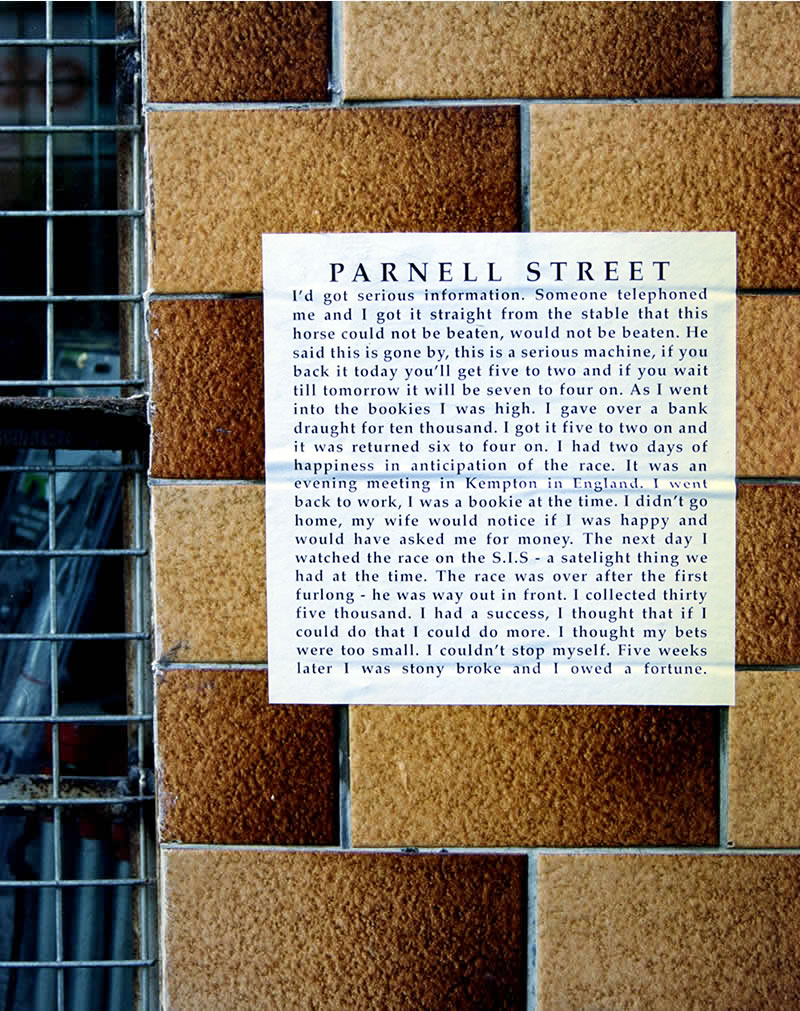 PARNELL STREET
I'd got serious information. Someone telephoned
me and I got it straight from the stable that this
horse could not be beaten, would not be beaten. He
said this is gone by, this is a serious machine, if you
back it today you'll get five to two and if you wait
till tomorrow it will be seven to four on. As I went
into the bookies I was high. I gave over a bank
draught for ten thousand. I got it five to two on and
it was returned six to four on. I had two days of
happiness in anticipation of the race. It was an
evening meeting in Kempton in England. I went
back to work, I was a bookie at the time. I didn't go
home, my wife would notice if I was happy and
would have asked me for money. The next day I
watched the race on the S.I.S - a satelight thing we
had at the time. The race was over after the first
furlong - he was way out in front. I collected thirty
five thousand. I had a success, I thought that if I
could do that I could do more. I thought my bets
were too small. I couldn't stop myself. Five weeks
later I was stony broke and I owed a fortune.